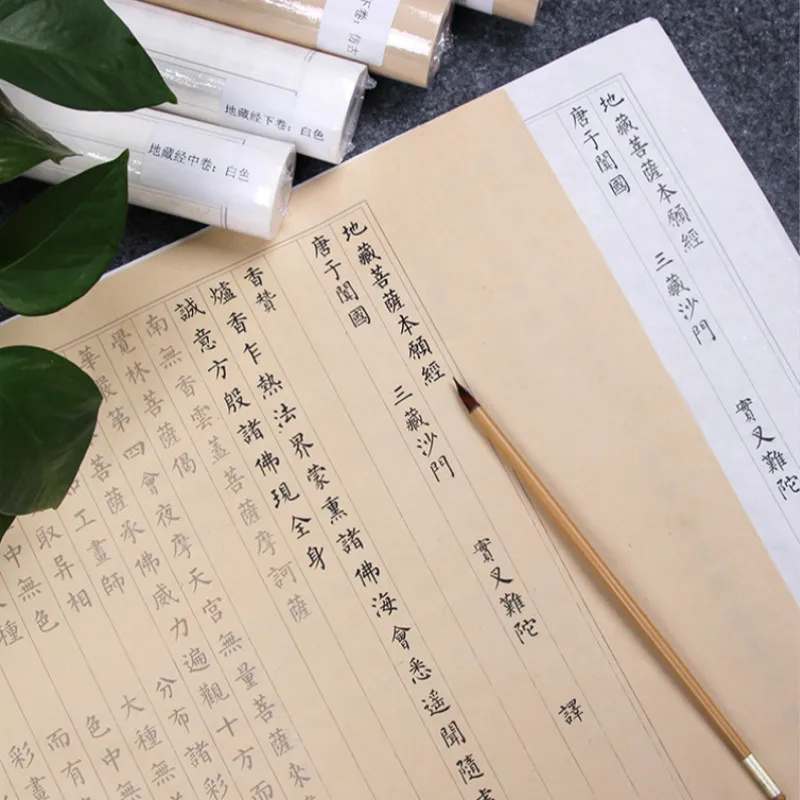 下卷：仿古
地藏经下卷：白色
地藏经中卷：白色
地藏菩薩本願經
唐于闐國 三藏沙門 實叉難陀
地藏菩薩本願經
唐于闐國 三藏沙門 實叉難陀 譯
香贊
爐香乍熱法界蒙熏諸佛海會悉遙聞隨
誠意方殷諸佛現全身
南無香雲蓋菩薩摩訶薩
覺林菩薩偈
華嚴第四會夜摩天宮無量菩薩來
菩薩承佛威力遍觀十方而
工畫師 分布諸彩
取异相 大種無
中無色 色中無
種 而有
彩畫